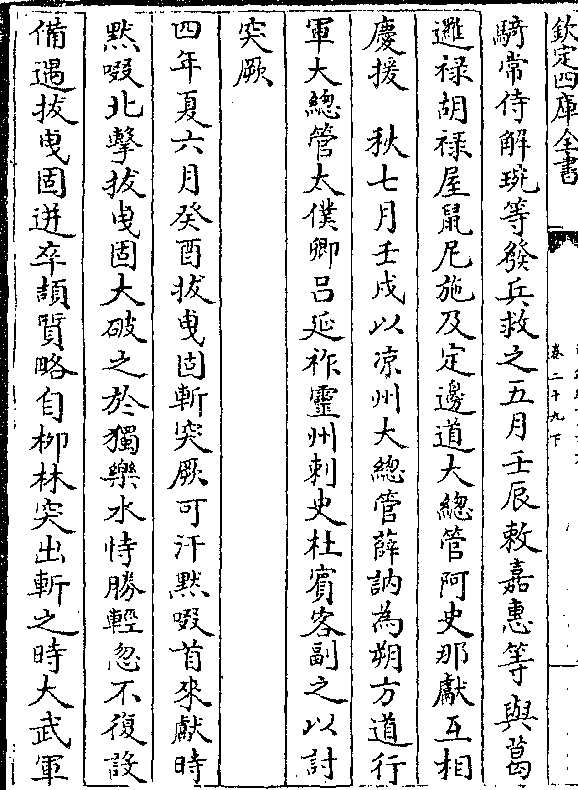 欽定四庫全書
卷二十九下
騎常侍解琬等發兵救之五月壬辰敕嘉惠等與葛
邏禄胡禄屋鼠尼施及定邊道大總管阿史那獻互相
慶援　秋七月壬戌以凉州大總管薛訥為朔方道行
軍大總管太僕卿吕延祚靈州刺史杜賓客副之以討
突厥
四年夏六月癸酉拔曳固斬突厥可汗黙啜首來獻時
黙啜北擊拔曳固大破之於獨樂水恃勝輕忽不復設
備遇拔曳固迸卒頡質略自柳林突出斬之時大武軍